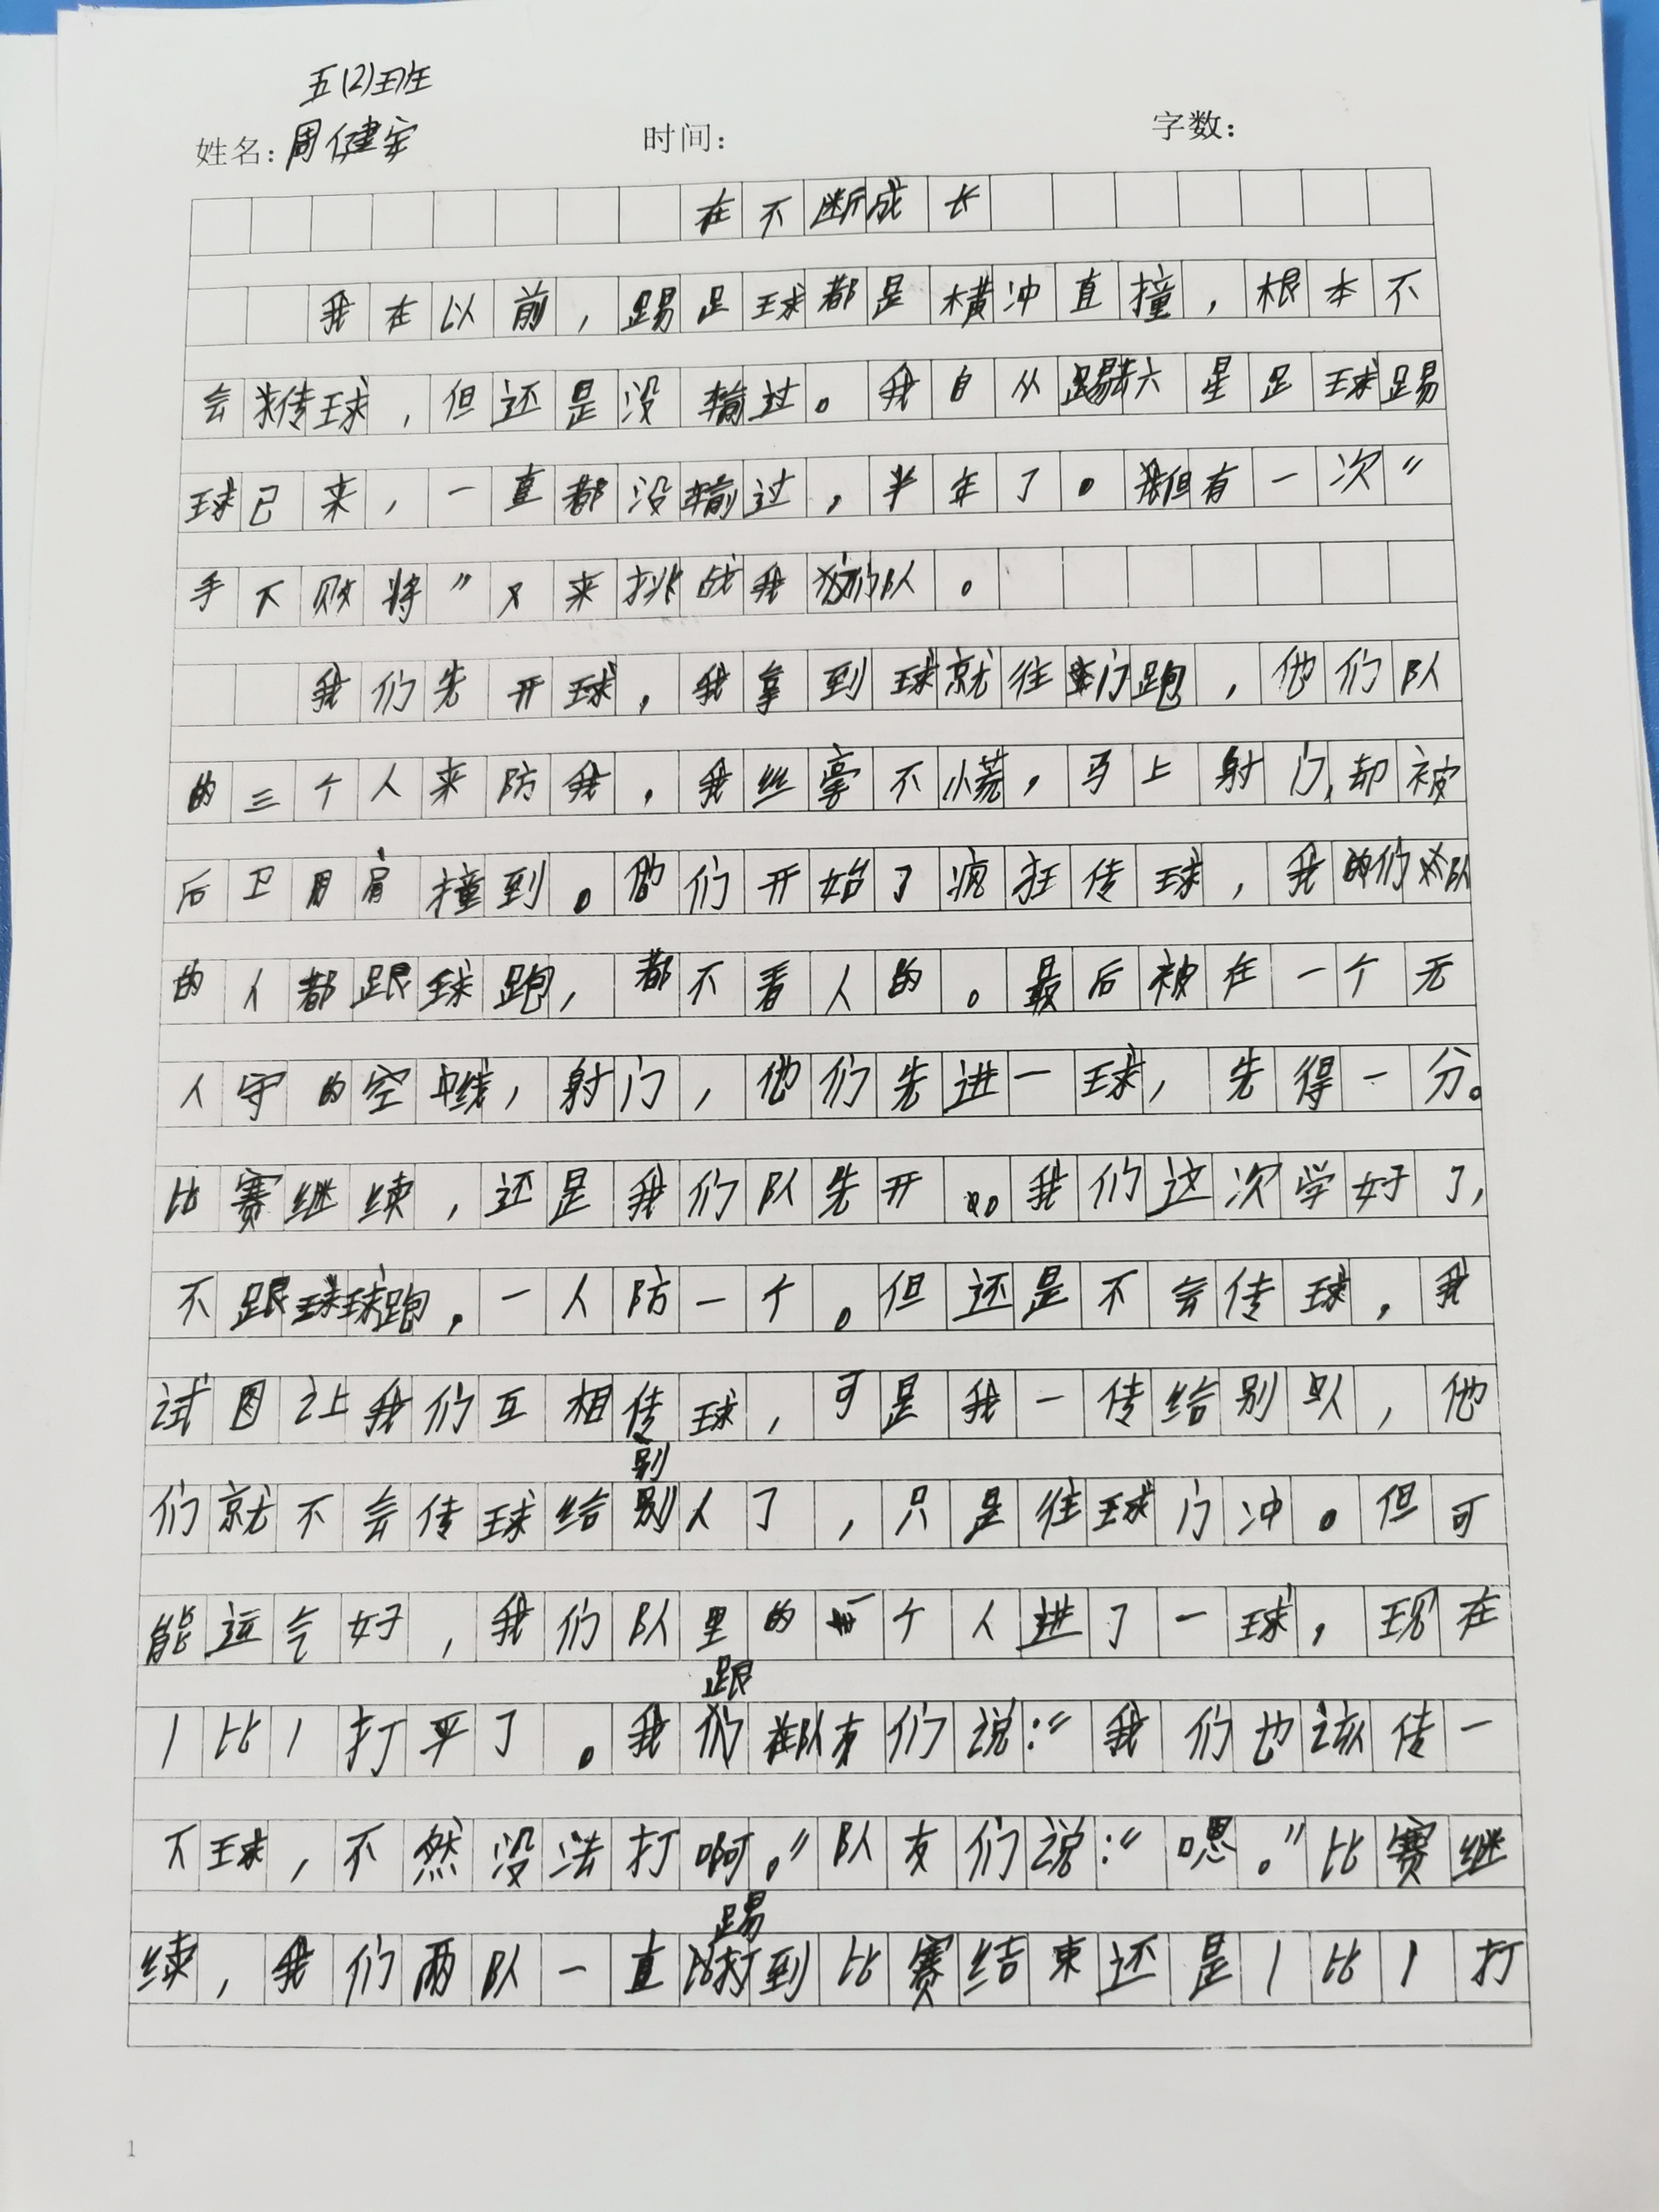 五(2)班
姓名：周健安 时间： 字数：
在不断成长
我在以前，踢足球都是横冲直撞，根本不
会传球，但还是没输过。我自从踢六星足球踢
球已来，一直都没输过，半年了。但有一次"
手下败将"又来挑战我们队。
我们先开球，我拿到球就往球门跑，他们队
的三个人来防我，我丝毫不慌，马上射门，却被
后卫用肩撞到。他们开始了疯狂传球，我们队
的人都跟球跑，都不看人的。最后被在一个无
人守的空中线，射门，他们先进一球，先得一分。
比赛继续，还是我们队先开。我们这次学好了，
不跟球跑，一人防一个。但还是不会传球，我
试图让我们互相传球，可是我一传给别队，他
们就不会传球给别人了，只是往球门冲。但可
能运气好，我们队里的一个人进了一球，现在
1比1打平了。我跟队友们说："我们也该传一
下球，不然没法打啊。"队友们说："嗯。"比赛继
续，我们两队一直踢到比赛结束还是1比1打
1